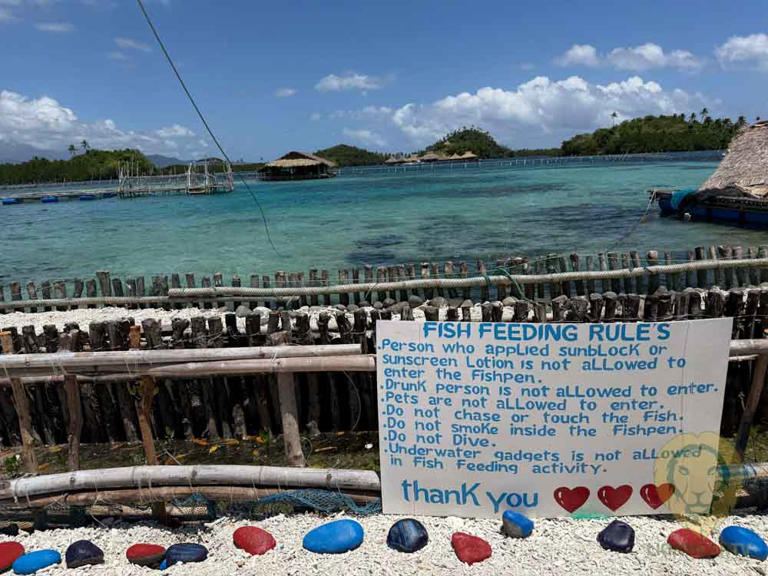 FISH FEEDING RULE'S
.Person who applied sunblock or
sunscreen Lotion is not allowed to
enter the Fishpen.
.Drunk person is not allowed to enter.
.Pets are not allowed to enter.
.Do not chase or touch the Fish.
.Do not smoke inside the Fishpen.
.Do not Dive.
.Underwater gadgets is not allowed
in Fish Feeding activity.
thank you